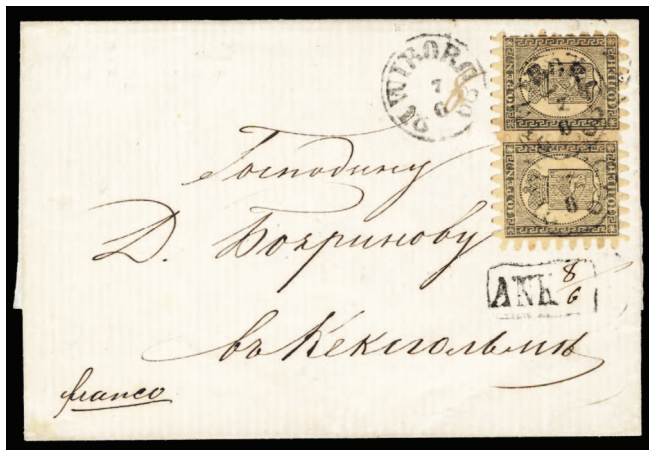 WIBORG
7
6
10 PEN
10 PEN
Господину
Д. Бояринову
ANK 8/6
въ Кексгольмѣ
franco